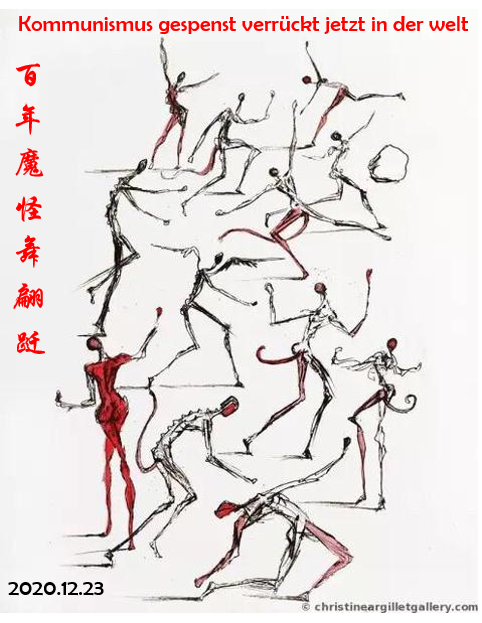 Kommunismus gespenst verrückt jetzt in der welt
百年魔怪舞翩跹
2020.12.23
© christineargilletgallery.com